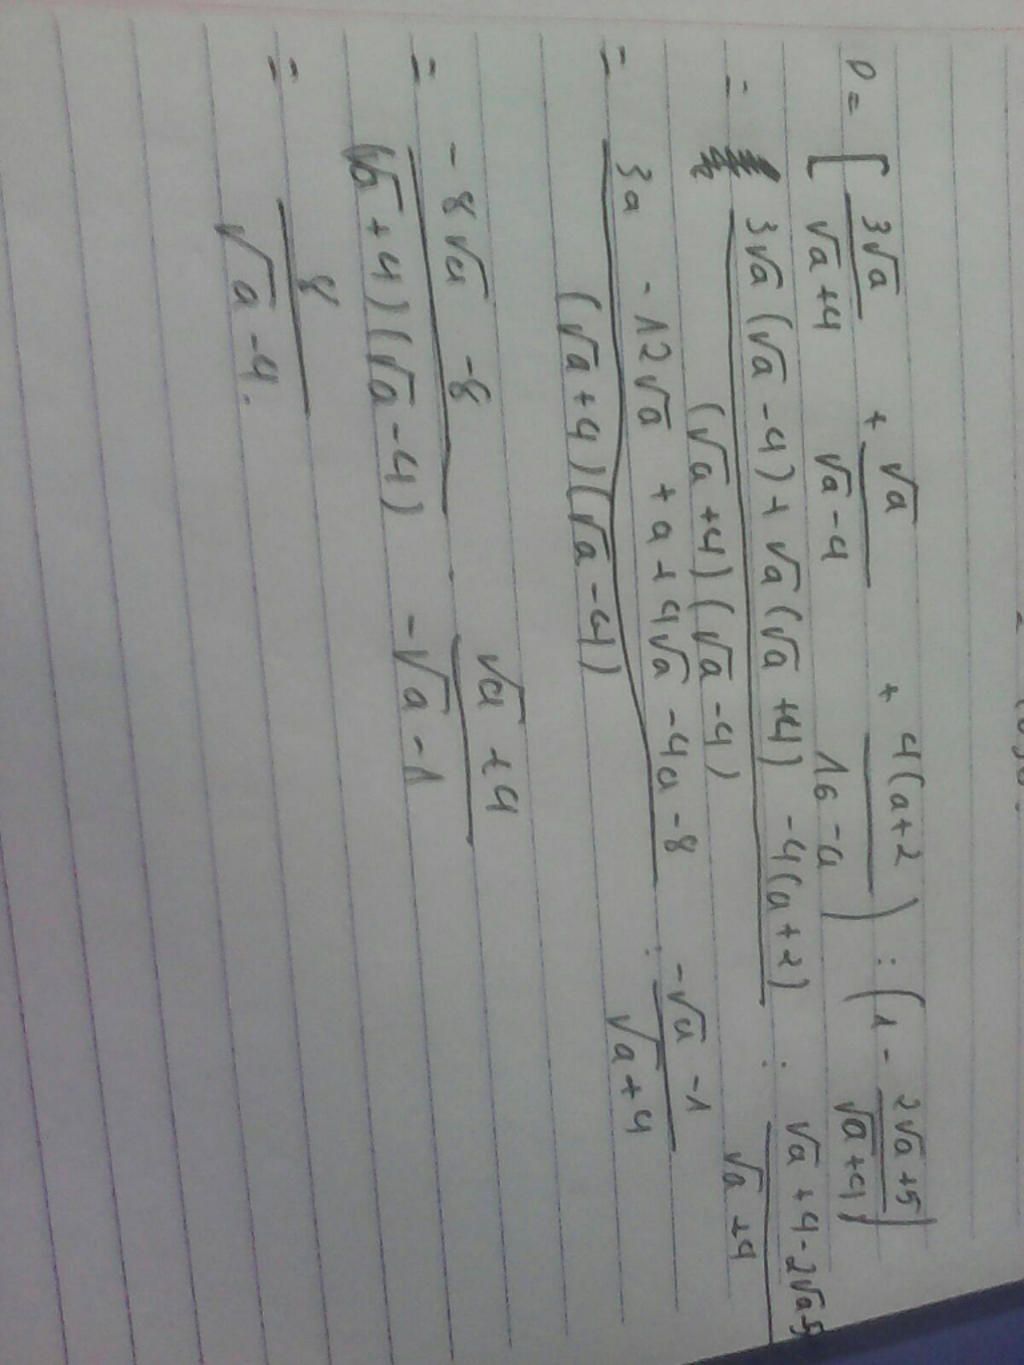 P = [ 3√a / (√a+4) + √a / (√a-4) + 4(a+2) / (16-a) ) : ( 1 - (2√a+5) / (√a+4) )
= (3√a(√a-4) + √a(√a+4) -4(a+2)) / ((√a+4)(√a-4)) : (√a+4-2√a-5) / (√a+4)
= (3a - 12√a + a + 4√a - 4a - 8) / ((√a+4)(√a-4)) : (-√a-1) / (√a+4)
= (-8√a -8) / ((√a+4)(√a-4)) . (√a+4) / (-√a-1)
= 8 / (√a-4).